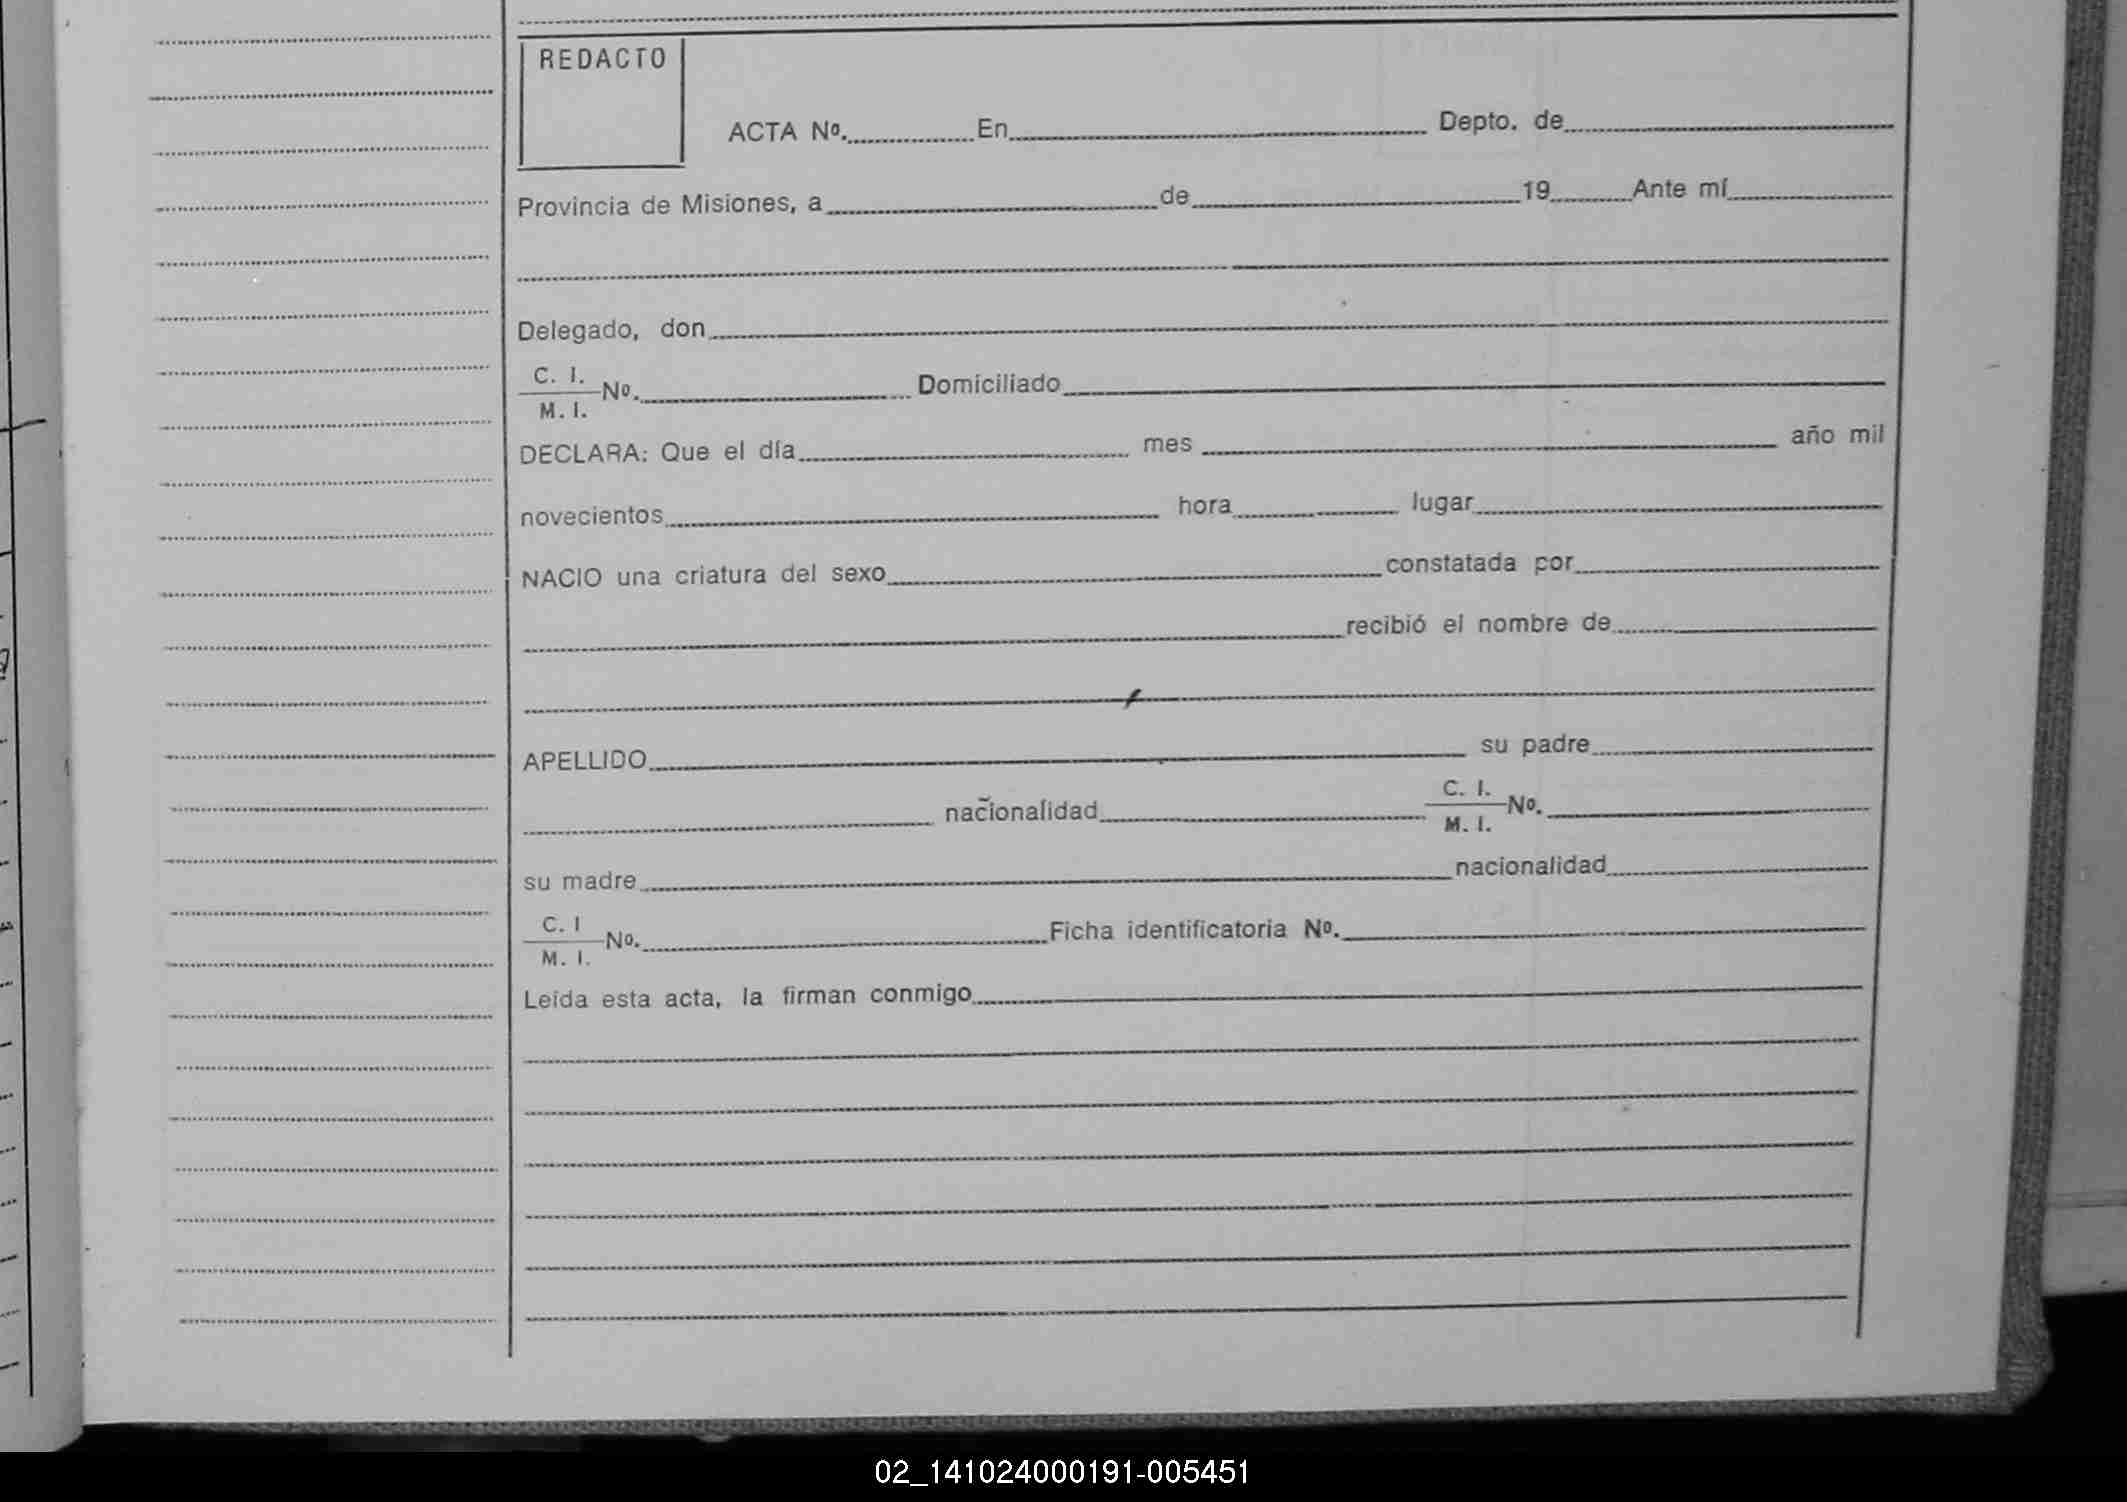 REDACTO
ACTA Nº. En Depto. de
Provincia de Misiones, a de 19 Ante mí
Delegado, don
C. I.
M. I. Nº. Domiciliado
DECLARA: Que el día mes año mil
novecientos hora lugar
NACIO una criatura del sexo constatada por
recibió el nombre de
APELLIDO su padre
nacionalidad C. I.
M. I. Nº.
su madre nacionalidad
C. I
M. I. Nº. Ficha identificatoria Nº.
Leída esta acta, la firman conmigo
02_141024000191-005451